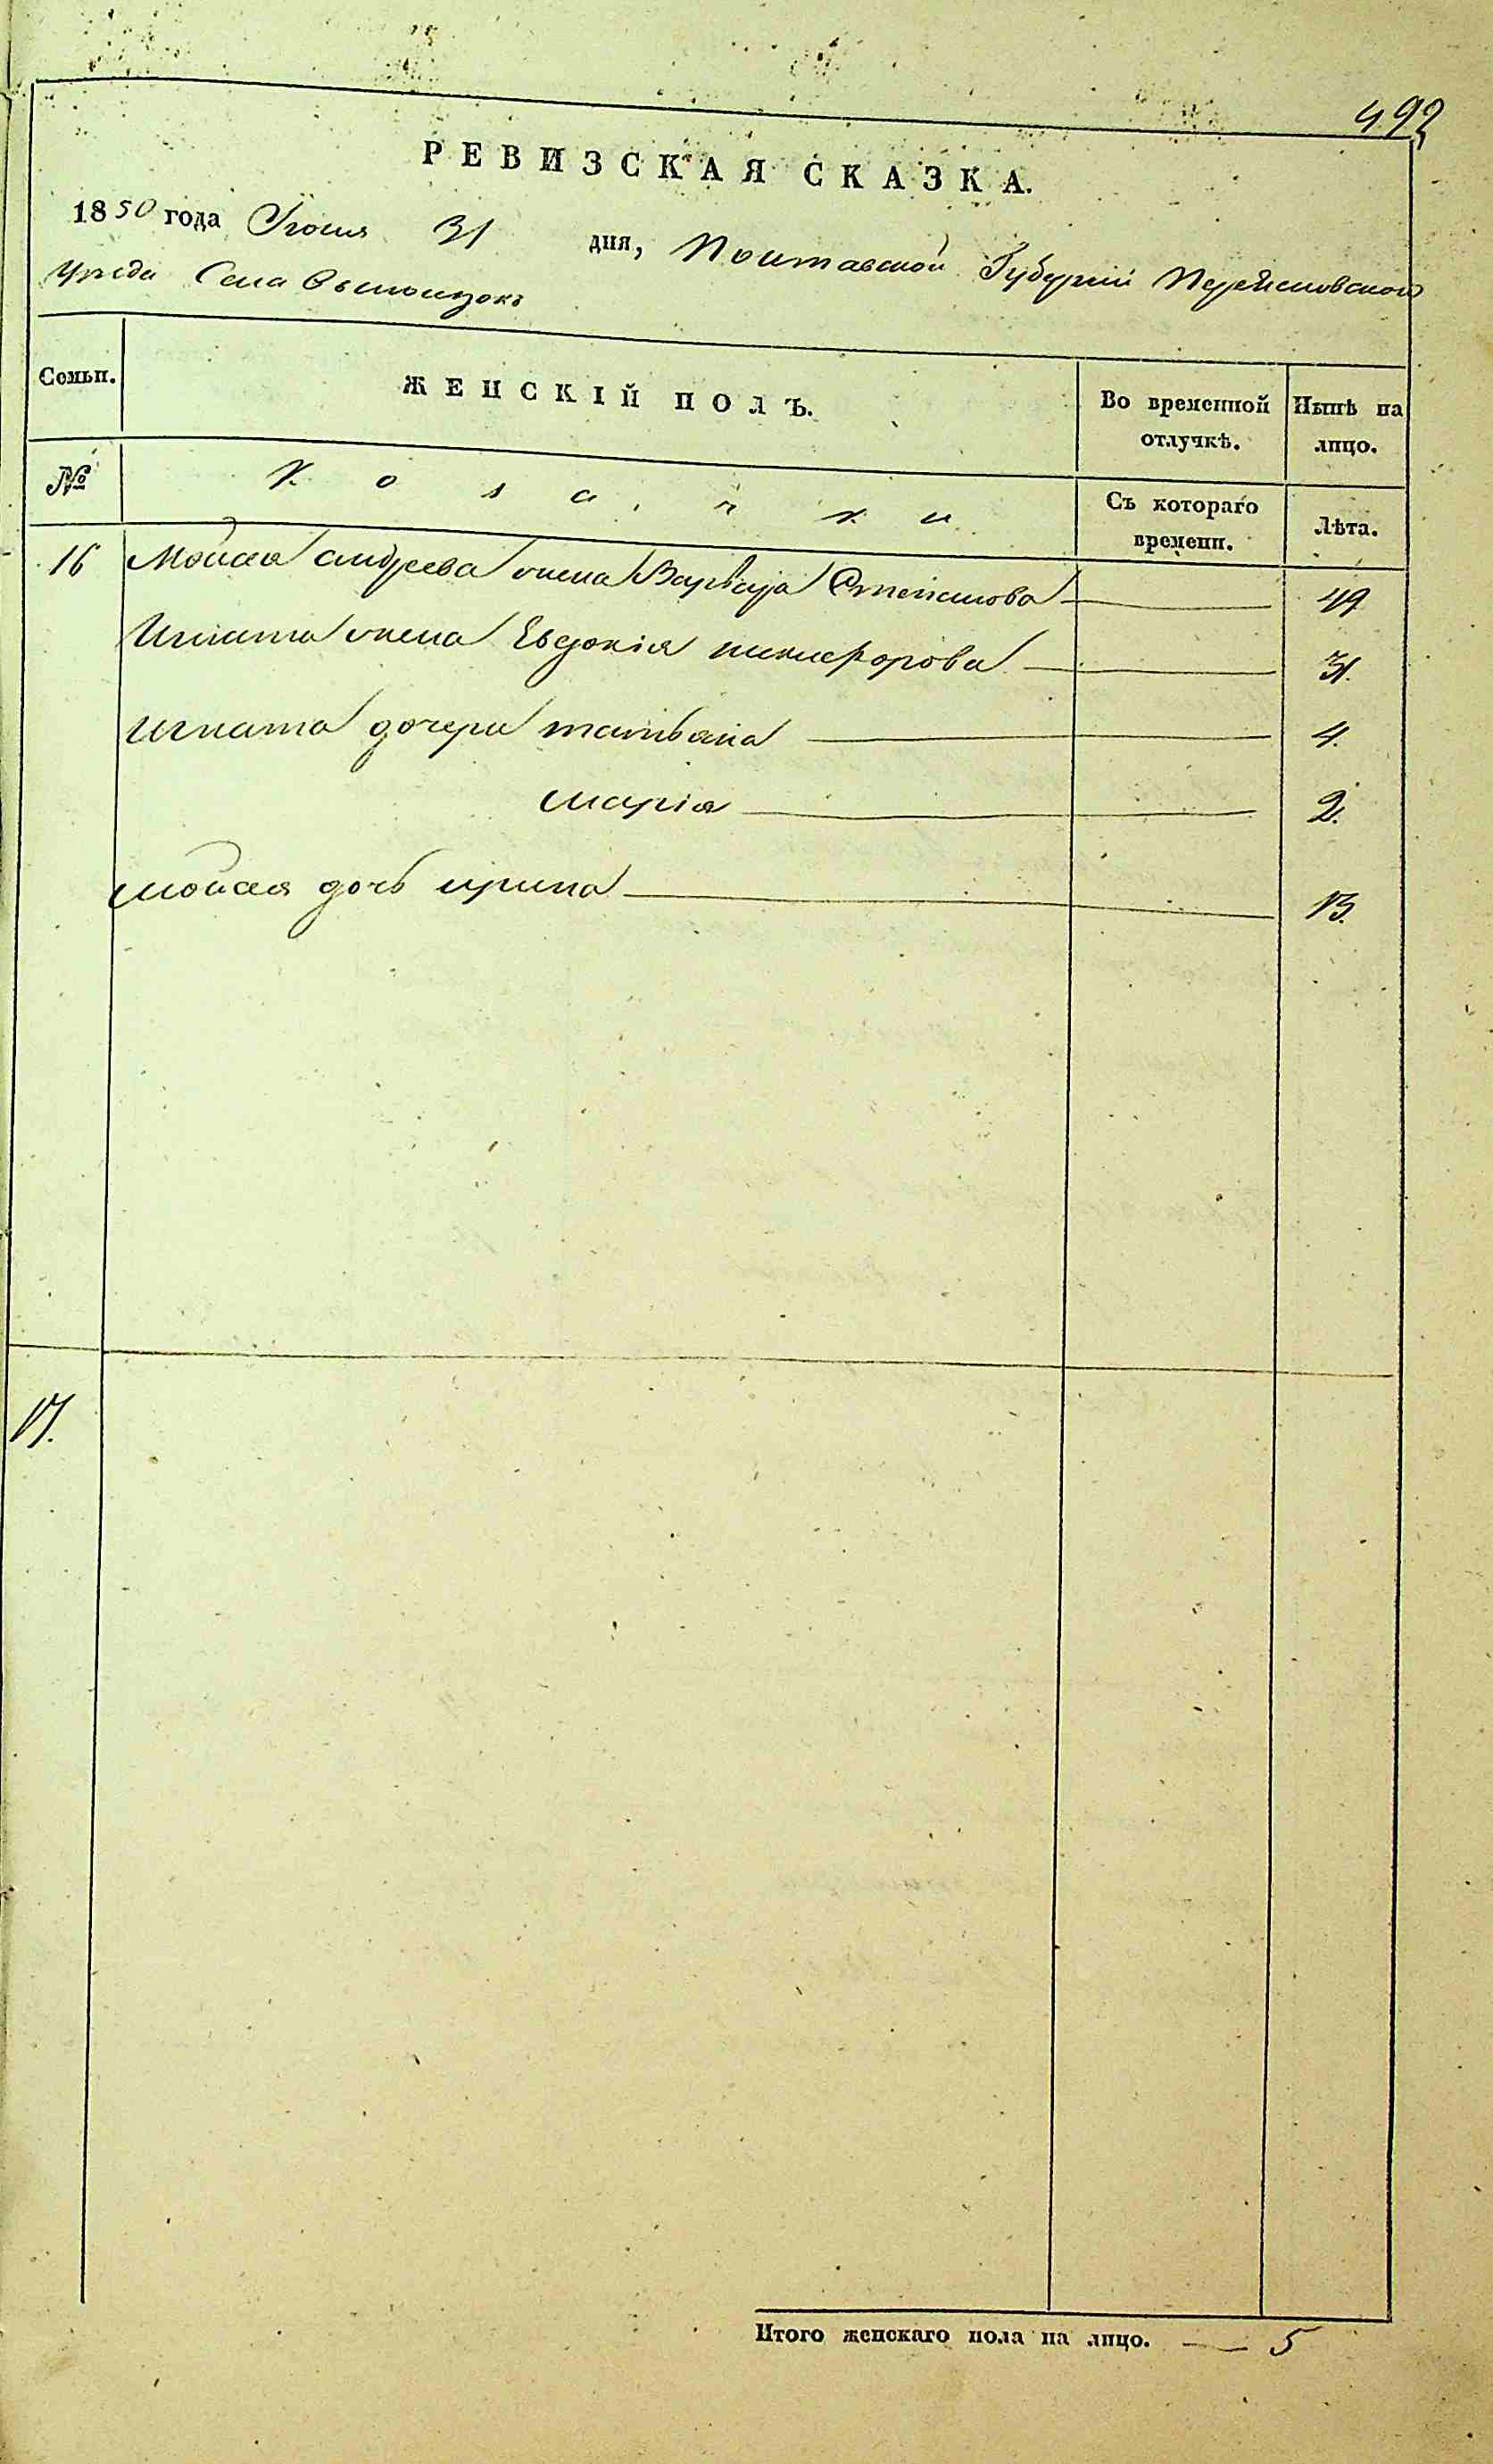 492
РЕВИЗСКАЯ СКАЗКА.
1850 года Июня 31 дня, Полтавской Губернии Переяславского
уезда Села
Семьи. ЖЕНСКІЙ ПОЛЪ. Во временной отлучкѣ. Нынѣ на лицо.
№ Козачки Съ котораго времени. Лѣта.
16 Мойсея андреева жена Варвара Степанова 49
Игната жена Евдокія никифорова 31.
Игната дочери татьяна 4.
марія 2.
мойсея дочь ирина 13.
17.
Итого женскаго пола на лицо. 5